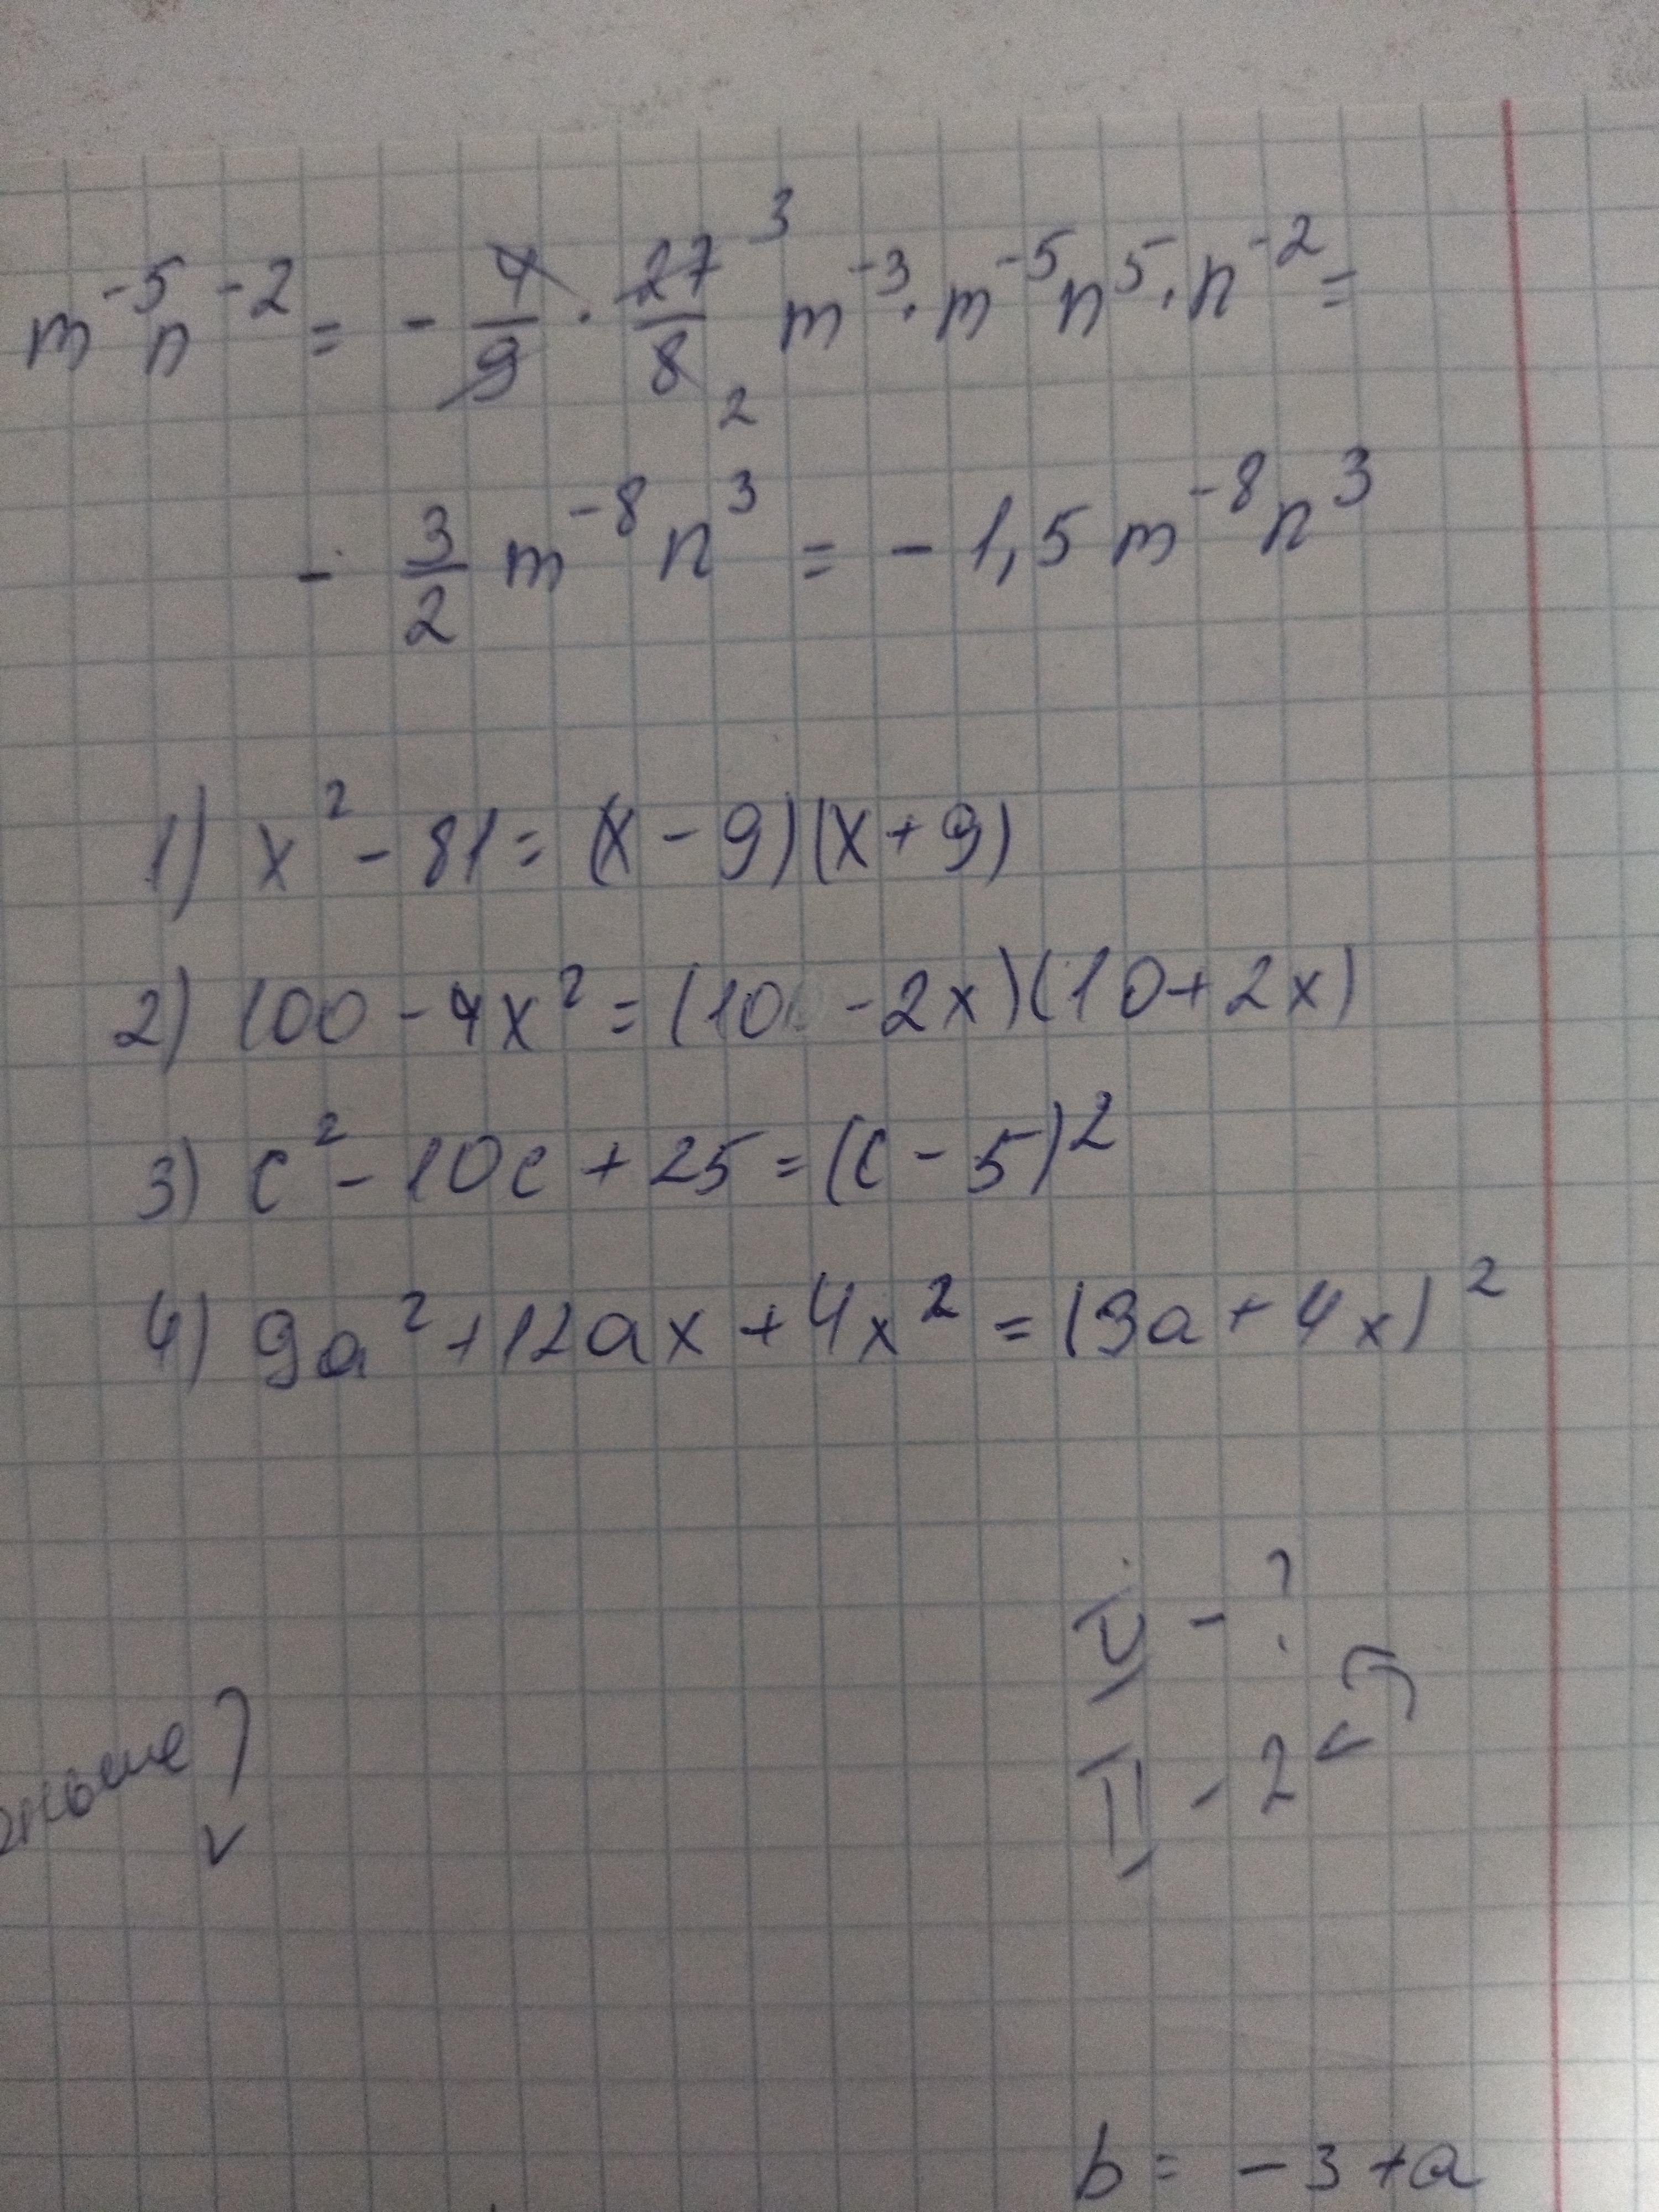 m⁻⁵n⁻² = - 4/9 · 27/8 ³ ₂ m⁻³ · m⁻⁵n⁵ · n⁻² =
- 3/2 m⁻⁸n³ = - 1,5 m⁻⁸n³
1) x² - 81 = (x - 9)(x + 9)
2) 100 - 4x² = (10 - 2x)(10 + 2x)
3) c² - 10c + 25 = (c - 5)²
4) 9a² + 12ax + 4x² = (9a + 4x)²
- ?
II - 2
b = - 3 + a